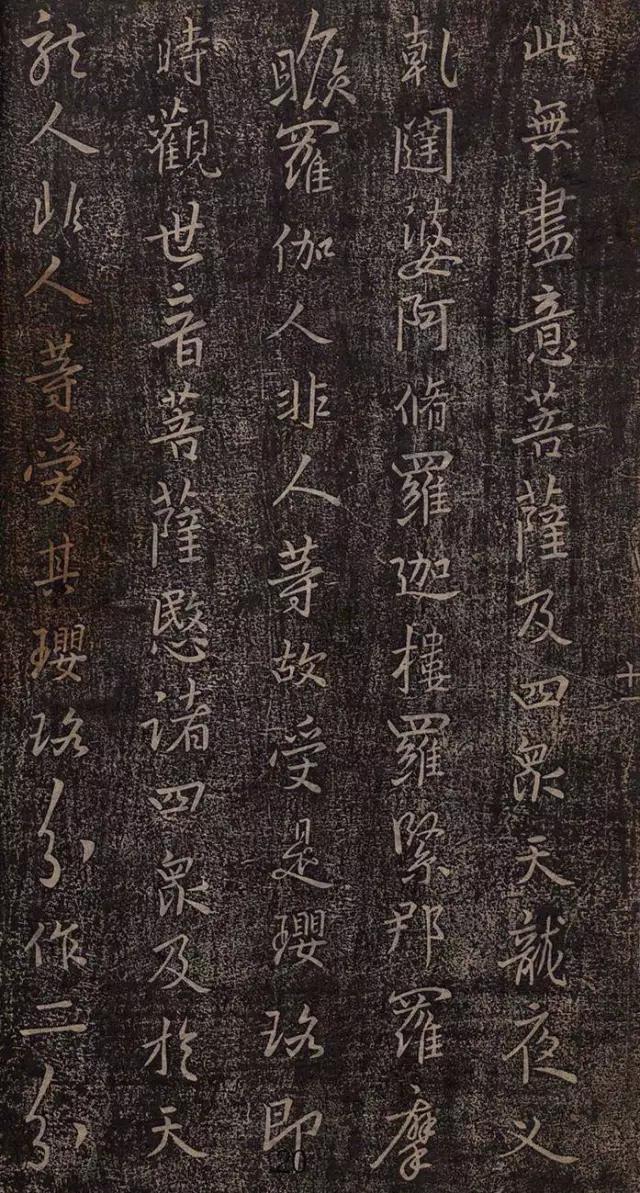 十一
此無盡意菩薩及四衆天龍夜叉
乹闥婆阿脩羅迦樓羅緊那羅摩
睺羅伽人非人等故受是瓔珞即
時觀世音菩薩愍諸四衆及於天
龍人非人等受其瓔珞分作二分
20